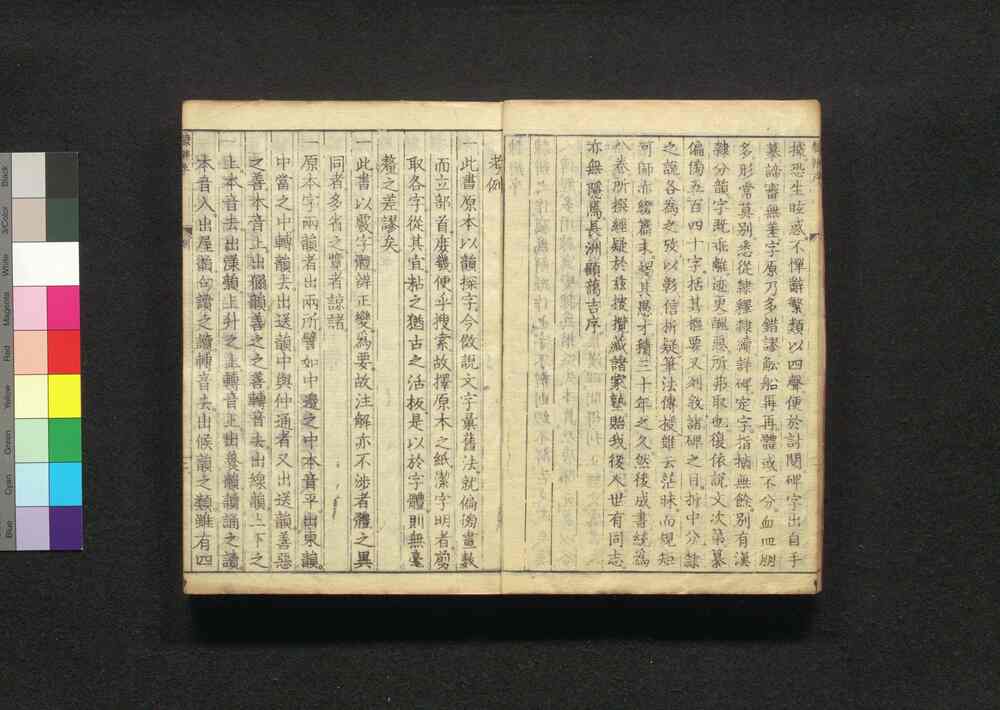 摭恐生眩惑不憚辭繁類以四聲便於討閱碑字出自手
摹諦審無差字原乃多錯謬舩船再再體或不分血皿朋
多形常莫別悉從隸釋隸續詳碑定字指摘無餘別有漢
隸分韻字既乖離迹更醜惡所弗取也復依說文次第纂
偏傍五百四十字括其樞要又列敘諸碑之目折中分隸
之說各為之攷以彰信析疑筆法傳授雖云茫昧而規矩
可師亦綴篇末起其愚才積三十年之久然後成書統為
八卷所撰經疑於茲按攢藏諸家塾貽我後人世有同志
亦無隱焉長洲顧藹吉序
考例
一此書原本以韻探字今倣說文字彙舊法就偏傍畫數
而立部首庶幾便乎搜索故擇原本之紙潔字明者剪
取各字從其宜粘之猶古之活板是以於字體則無毫
釐之差謬矣
一此書以覈字體辨正變為要故注解亦不涉者體之異
同者多省之覽者諒諸
一原本字兩韻者出兩所譬如中邊之中本音平出東韻
中當之中轉韻去出送韻中與仲通者又出送韻善惡
之善本音上出獮韻善之之善轉音去出線韻上下之
上本音去出漾韻上升之上轉音上出養韻讀誦之讀
本音入出屋韻句讀之讀轉音去出候韻之類雖有四
Black
3/Color
White
Magenta
Red
Yellow
Green
Cyan
Blue